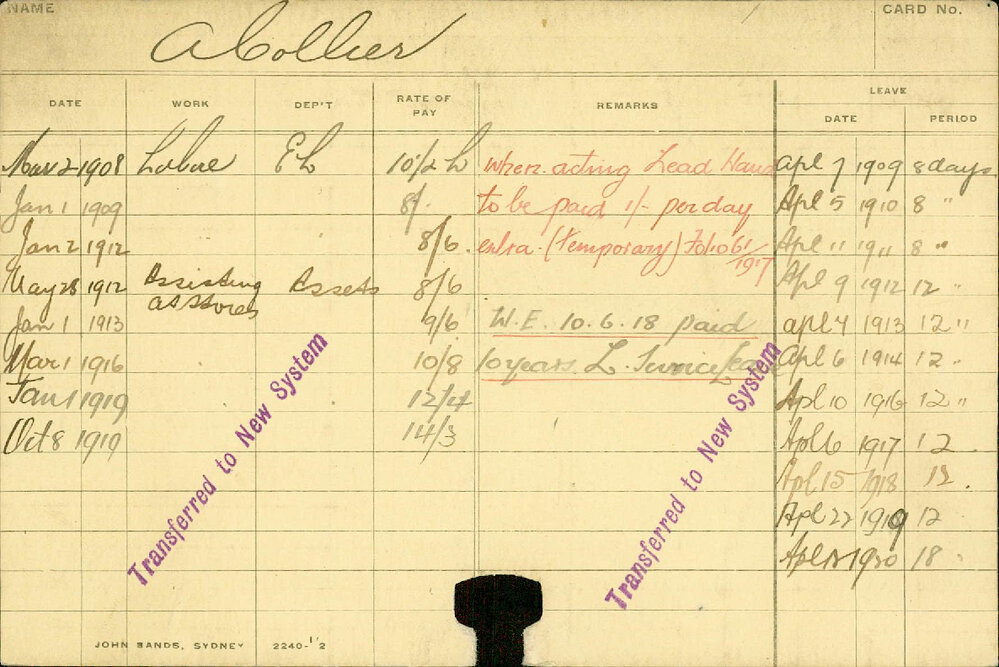 NAME
CARD No.
A Collier
DATE WORK DEP'T RATE OF PAY REMARKS LEAVE
DATE PERIOD
Mar 2 1908 Labore E L 10'/2 L when acting Lead Hand Apl 7 1909 8 days
Jan 1 1909 8/- to be paid 1/- per day Apl 5 1910 8 "
Jan 2 1912 8/6 extra (temporary) Folio 61/1917 Apl 11 1911 8 "
May 28 1912 Assisting at Stores Assets 8/6 Apl 9 1912 12 "
Jan 1 1913 9/6 W.E. 10.6.18 paid apl 4 1913 12 "
Mar 1 1916 10/8 10 years L. Service Apl 6 1914 12 "
Jan 1 1919 12/4 Apl 10 1916 12 "
Oct 8 1919 14/3 Apl 6 1917 12
Apl 15 1918 12
Apl 22 1919 12
Apl 1920 18 "
Transferred to New System
Transferred to New System
JOHN SANDS, SYDNEY 2240-1'2